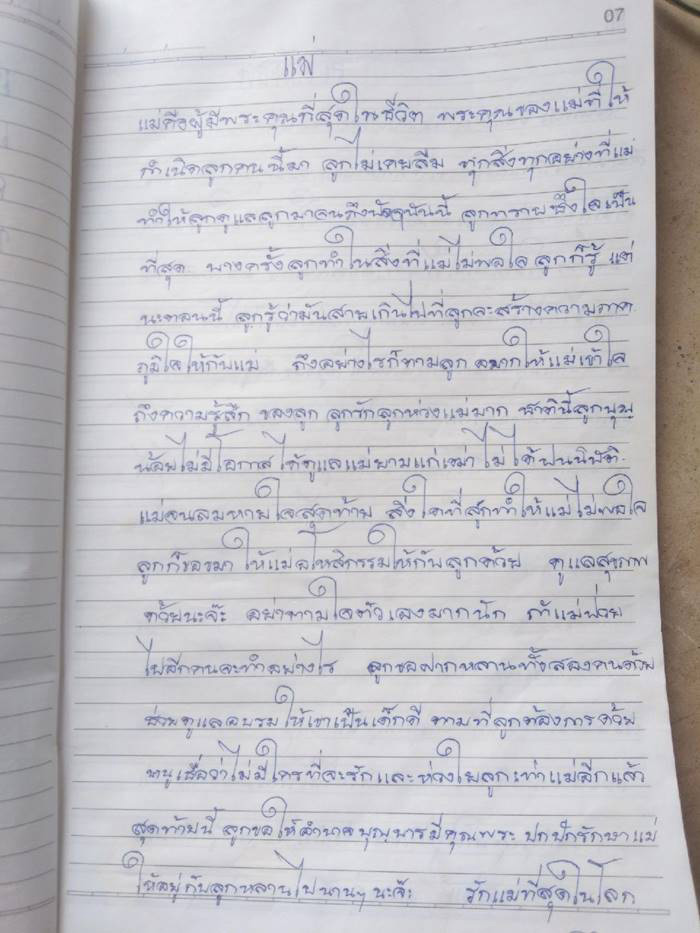 07
แม่
แม่คือผู้มีพระคุณที่สุดในชีวิต พระคุณของแม่ที่ให้
กำเนิดลูกคนนี้มา ลูกไม่เคยลืม ทุกสิ่งทุกอย่างที่แม่
ทำให้ลูกดูแลลูกมาจนถึงปัจจุบันนี้ ลูกทราบซึ้งใจเป็น
ที่สุด บางครั้งลูกทำในสิ่งที่แม่ไม่พอใจ ลูกก็รู้ แต่
นะตอนนี้ ลูกรู้ว่ามันสายเกินไปที่ลูกจะสร้างความภาค
ภูมิใจให้กับแม่ ถึงอย่างไรก็ตามลูก อยากให้แม่เข้าใจ
ถึงความรู้สึก ของลูก ลูกรักลูกห่วงแม่มาก ชาตินี้ลูกบุญ
น้อยไม่มีโอกาสได้ดูแลแม่ยามแก่เฒ่า ไม่ได้ปรนนิบัติ
แม่จนลมหายใจสุดท้าย สิ่งใดที่ลูกทำให้แม่ไม่พอใจ
ลูกก็ขอขมา ให้แม่อโหสิกรรมให้กับลูกด้วย ดูแลสุขภาพ
ด้วยนะจ๊ะ อย่าตามใจตัวเองมากนัก ถ้าแม่ป่วย
ไปอีกคนจะทำอย่างไร ลูกขอฝากหลานทั้งสองคนด้วย
ช่วยดูแลอบรมให้เขาเป็นเด็กดี ตามที่ลูกต้องการด้วย
หนูเชื่อว่าไม่มีใครที่จะรักและห่วงใยลูกเท่าแม่อีกแล้ว
สุดท้ายนี้ ลูกขอให้อำนาจบุญบารมีคุณพระ ปกปักรักษาแม่
ให้อยู่กับลูกหลานไปนานๆนะจ๊ะ รักแม่ที่สุดในโลก